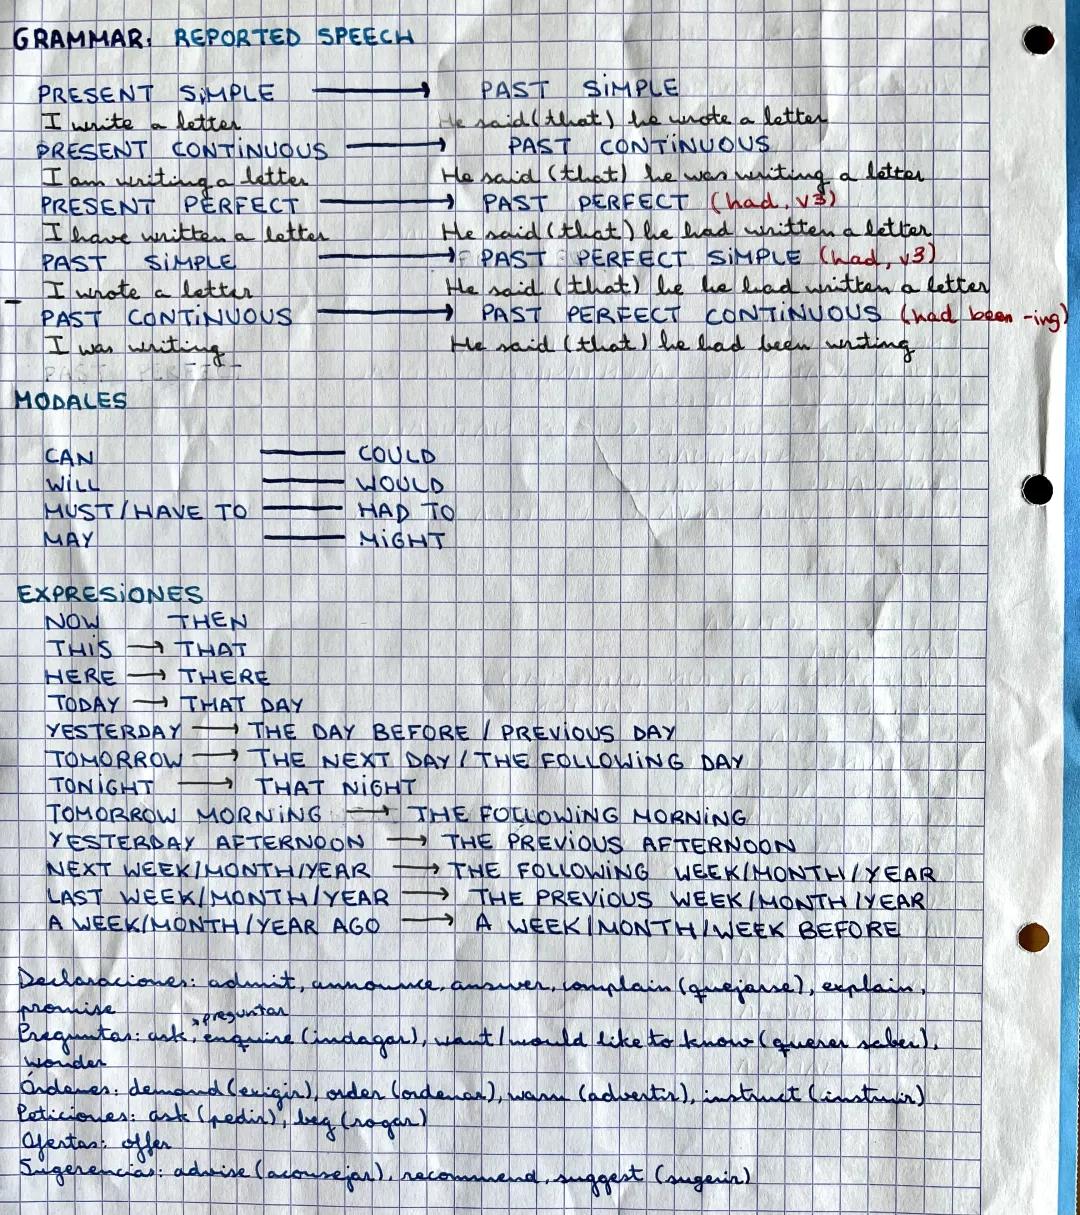 GRAMMAR: REPORTED SPEECH
PRESENT SIMPLE → PAST SIMPLE
I write a letter He said (that) he wrote a letter
PRESENT CONTINUOUS → PAST CONTINUOUS
I am writing a letter He said (that) he was writing a letter
PRESENT PERFECT → PAST PERFECT (had, v3)
I have written a letter He said (that) he had written a letter
PAST SIMPLE → PAST PERFECT SIMPLE (had, v3)
I wrote a letter He said (that) he he had written a letter
PAST CONTINUOUS → PAST PERFECT CONTINUOUS (had been -ing)
I was writing He said (that) he had been writing
MODALES
CAN — COULD
WILL — WOULD
MUST/HAVE TO — HAD TO
MAY — MIGHT
EXPRESIONES
NOW THEN
THIS → THAT
HERE → THERE
TODAY → THAT DAY
YESTERDAY → THE DAY BEFORE / PREVIOUS DAY
TOMORROW → THE NEXT DAY / THE FOLLOWING DAY
TONIGHT → THAT NIGHT
TOMORROW MORNING → THE FOLLOWING MORNING
YESTERDAY AFTERNOON → THE PREVIOUS AFTERNOON
NEXT WEEK/MONTH/YEAR → THE FOLLOWING WEEK/MONTH/YEAR
LAST WEEK/MONTH/YEAR → THE PREVIOUS WEEK/MONTH/YEAR
A WEEK/MONTH/YEAR AGO → A WEEK/MONTH/WEEK BEFORE
Declaraciones: admit, announce, answer, complain (quejarse), explain,
promise
preguntar
Preguntas: ask, enquire (indagar), want/would like to know (querer saber),
wonder
Órdenes: demand (exigir), order (ordenar), warn (advertir), instruct (instruir)
Peticiones: ask (pedir), beg (rogar)
Ofertas: offer
Sugerencias: advise (aconsejar), recommend, suggest (sugerir)